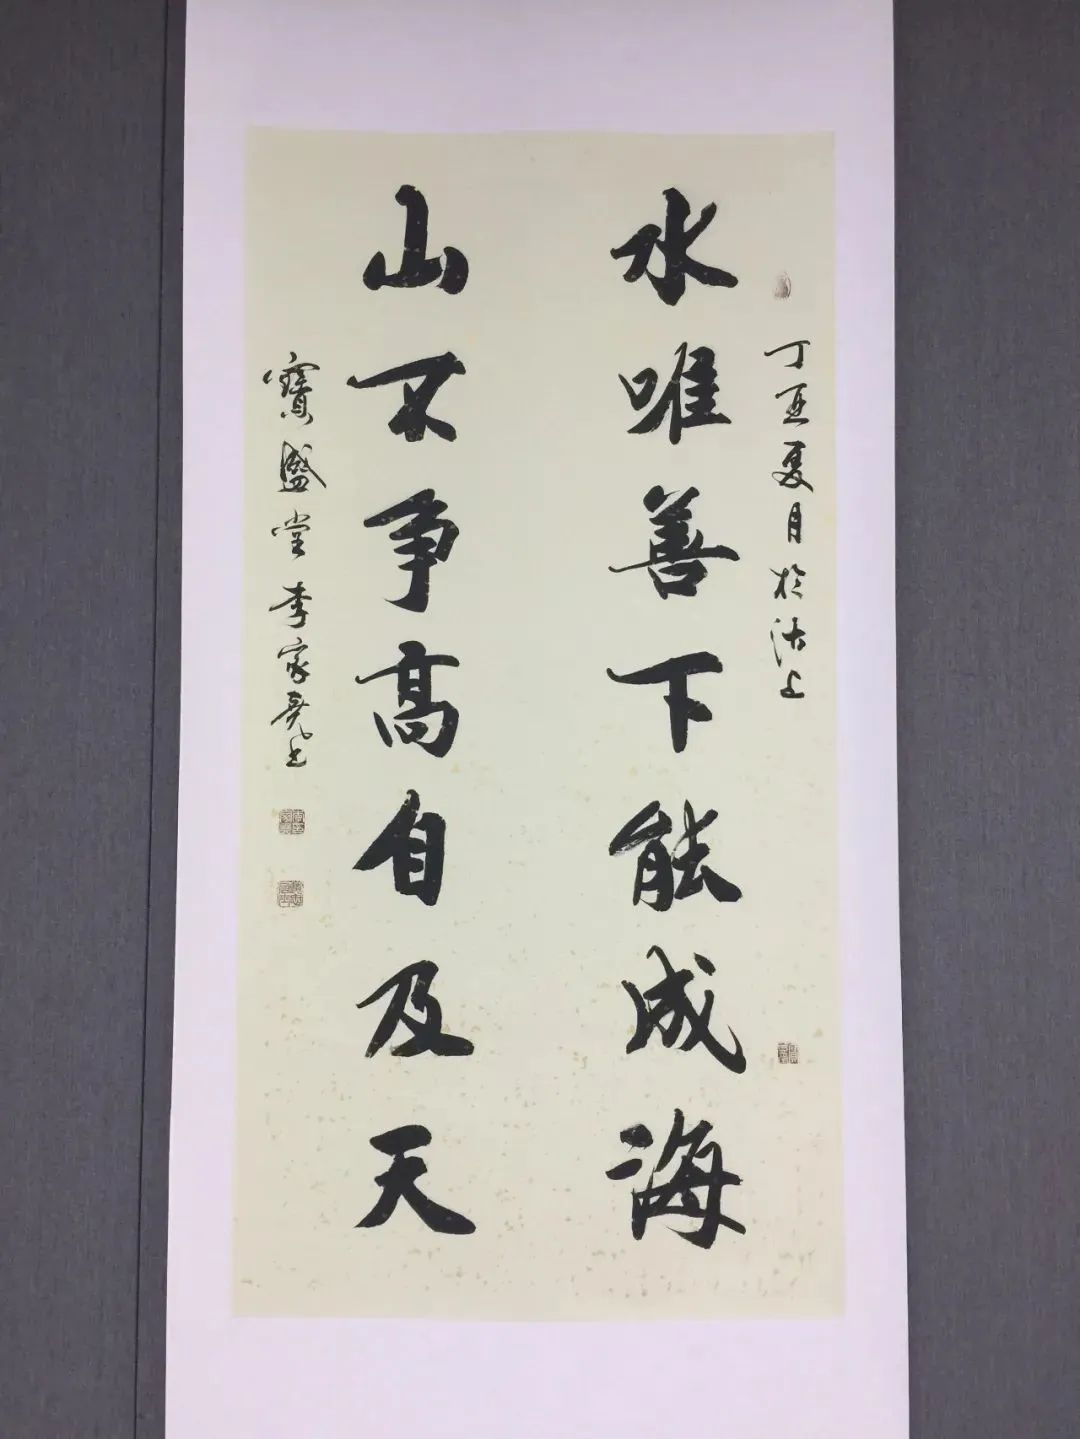 丁亥夏月於沽上
水唯善下能成海
山不争高自及天
寶盛堂李家尧书